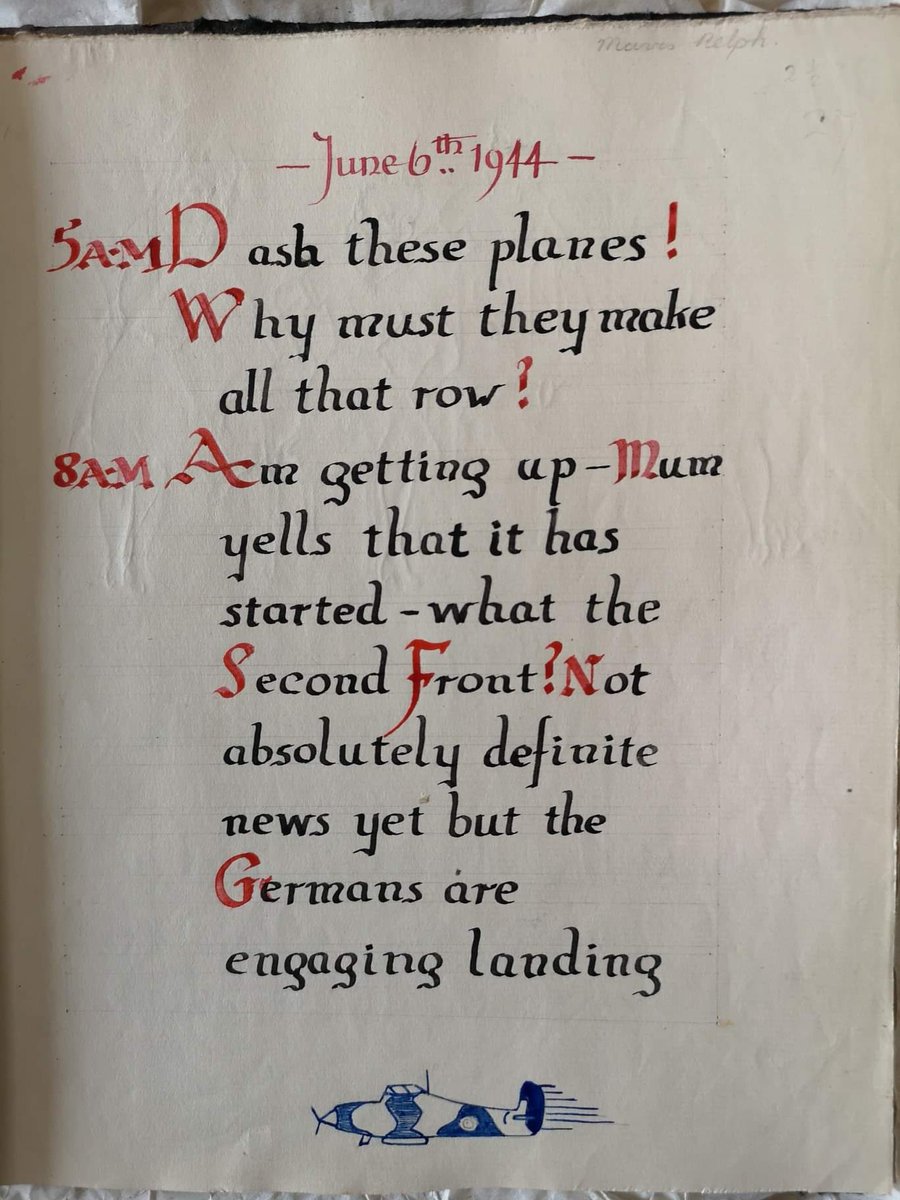 Mavis Relph.
2 ½
– June 6th 1944 –
5A·M Dash these planes!
Why must they make
all that row!
8A·M Am getting up – Mum
yells that it has
started – what the
Second Front? Not
absolutely definite
news yet but the
Germans are
engaging landing